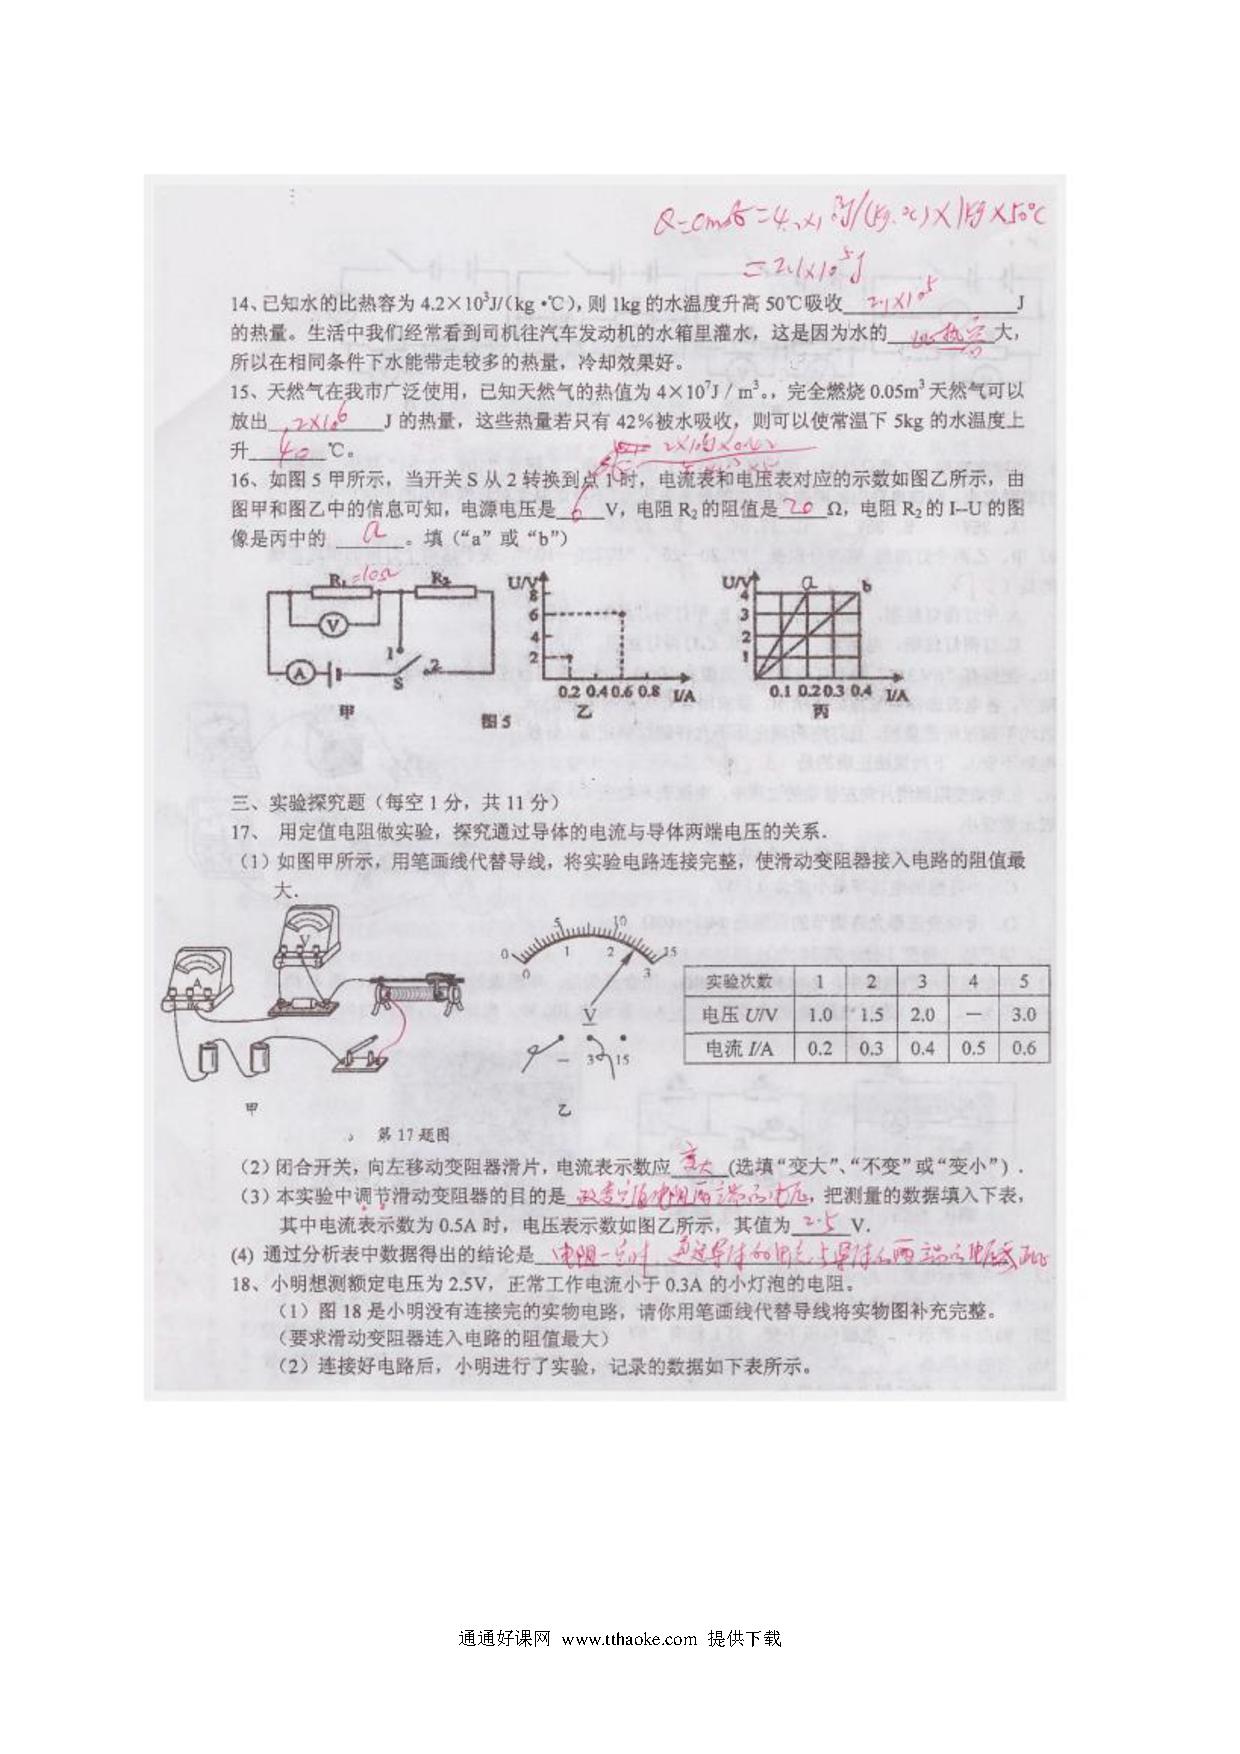 =2.1×10⁵J
14、已知水的比热容为 4.2×10³J/(kg •℃), 则 1kg 的水温度升高 50℃吸收 2.1×10⁵ J
的热量。生活中我们经常看到司机往汽车发动机的水箱里灌水，这是因为水的 比热容 大，
所以在相同条件下水能带走较多的热量，冷却效果好。
15、天然气在我市广泛使用，已知天然气的热值为 4×10⁷J / m³。，完全燃烧 0.05m³ 天然气可以
放出 2×10⁶ J 的热量，这些热量若只有 42%被水吸收，则可以使常温下 5kg 的水温度上
升 40 ℃。
16、如图 5 甲所示，当开关 S 从 2 转换到点 1 时，电流表和电压表对应的示数如图乙所示，由
图甲和图乙中的信息可知，电源电压是 6 V，电阻 R₂ 的阻值是 20 Ω，电阻 R₂ 的 I--U 的图
像是丙中的 a 。填（“a”或“b”）
R₁ =10Ω R₂
V
A
1
2
S
甲
图 5
U/V
8
6
4
2
0.2 0.4 0.6 0.8 I/A
乙
U/V
a
b
4
3
2
1
0.1 0.2 0.3 0.4 I/A
丙
三、实验探究题（每空 1 分，共 11 分）
17、 用定值电阻做实验，探究通过导体的电流与导体两端电压的关系.
（1）如图甲所示，用笔画线代替导线，将实验电路连接完整，使滑动变阻器接入电路的阻值最
大.
A
V
甲
0 5 10 15
0 1 2 3
V
— 3 15
乙
实验次数 1 2 3 4 5
电压 U/V 1.0 1.5 2.0 — 3.0
电流 I/A 0.2 0.3 0.4 0.5 0.6
第 17 题图
（2）闭合开关，向左移动变阻器滑片，电流表示数应 变大 (选填“变大”、“不变”或“变小”）.
（3）本实验中调节滑动变阻器的目的是 改变定值电阻两端的电压，把测量的数据填入下表，
其中电流表示数为 0.5A 时，电压表示数如图乙所示，其值为 2.5 V.
(4) 通过分析表中数据得出的结论是 电阻一定时 通过导体的电流与导体的两端的电压成正比
18、小明想测额定电压为 2.5V，正常工作电流小于 0.3A 的小灯泡的电阻。
（1）图 18 是小明没有连接完的实物电路，请你用笔画线代替导线将实物图补充完整。
（要求滑动变阻器连入电路的阻值最大）
（2）连接好电路后，小明进行了实验，记录的数据如下表所示。
通通好课网 www.tthaoke.com 提供下载